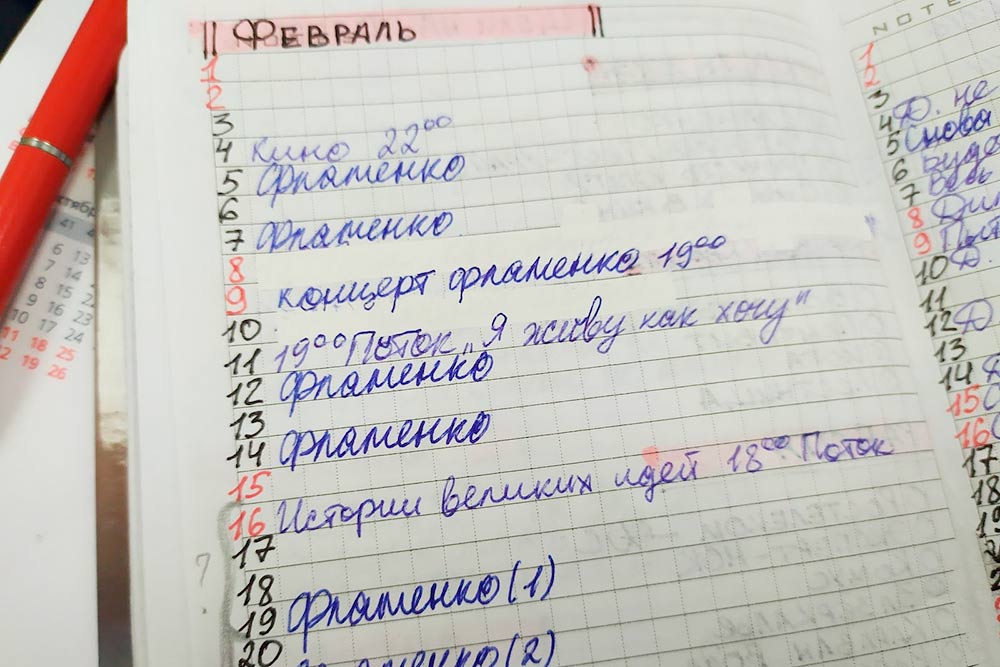 ФЕВРАЛЬ
1
2
3
4 Кино 22⁰⁰
5 Фламенко
6
7 Фламенко
8
9 концерт фламенко 19⁰⁰
10
11 19⁰⁰ Поток „Я живу как хочу"
12 Фламенко
13
14 Фламенко
15
16 Истории великих идей 18⁰⁰ Поток
17
18
19 Фламенко (1)
20 (2)
?
NOTE
1
2
3
4 Д. не
5 Снова
6
7
8
9
10 Д.
11
12 Д
13
14
15
16
17
18
19
41
6 13
7 14
8 15 22
9 16 23
10 17 24
11 18 25
12 19 26